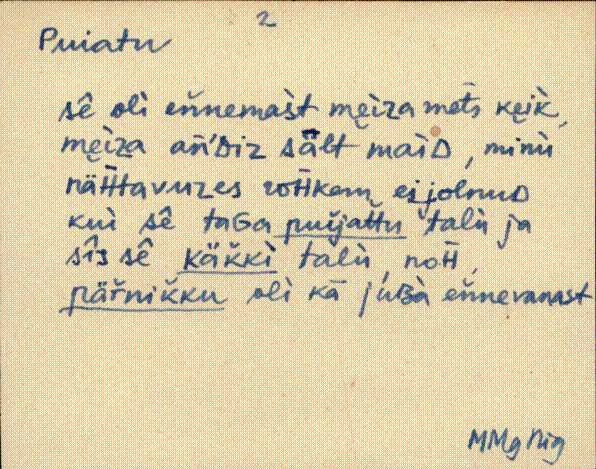 2
Puiatu
sê oli eňnemàst męìza mets kęik,
męìza añ'Diz sält maìD, minù
näħtavuzes roħkem ei jolnuD
kui sê taGa puijattu talù ja
sîs sê käkki talù, noħ,
pärnikku oli kā juBà eňnevanast
MMg Rig